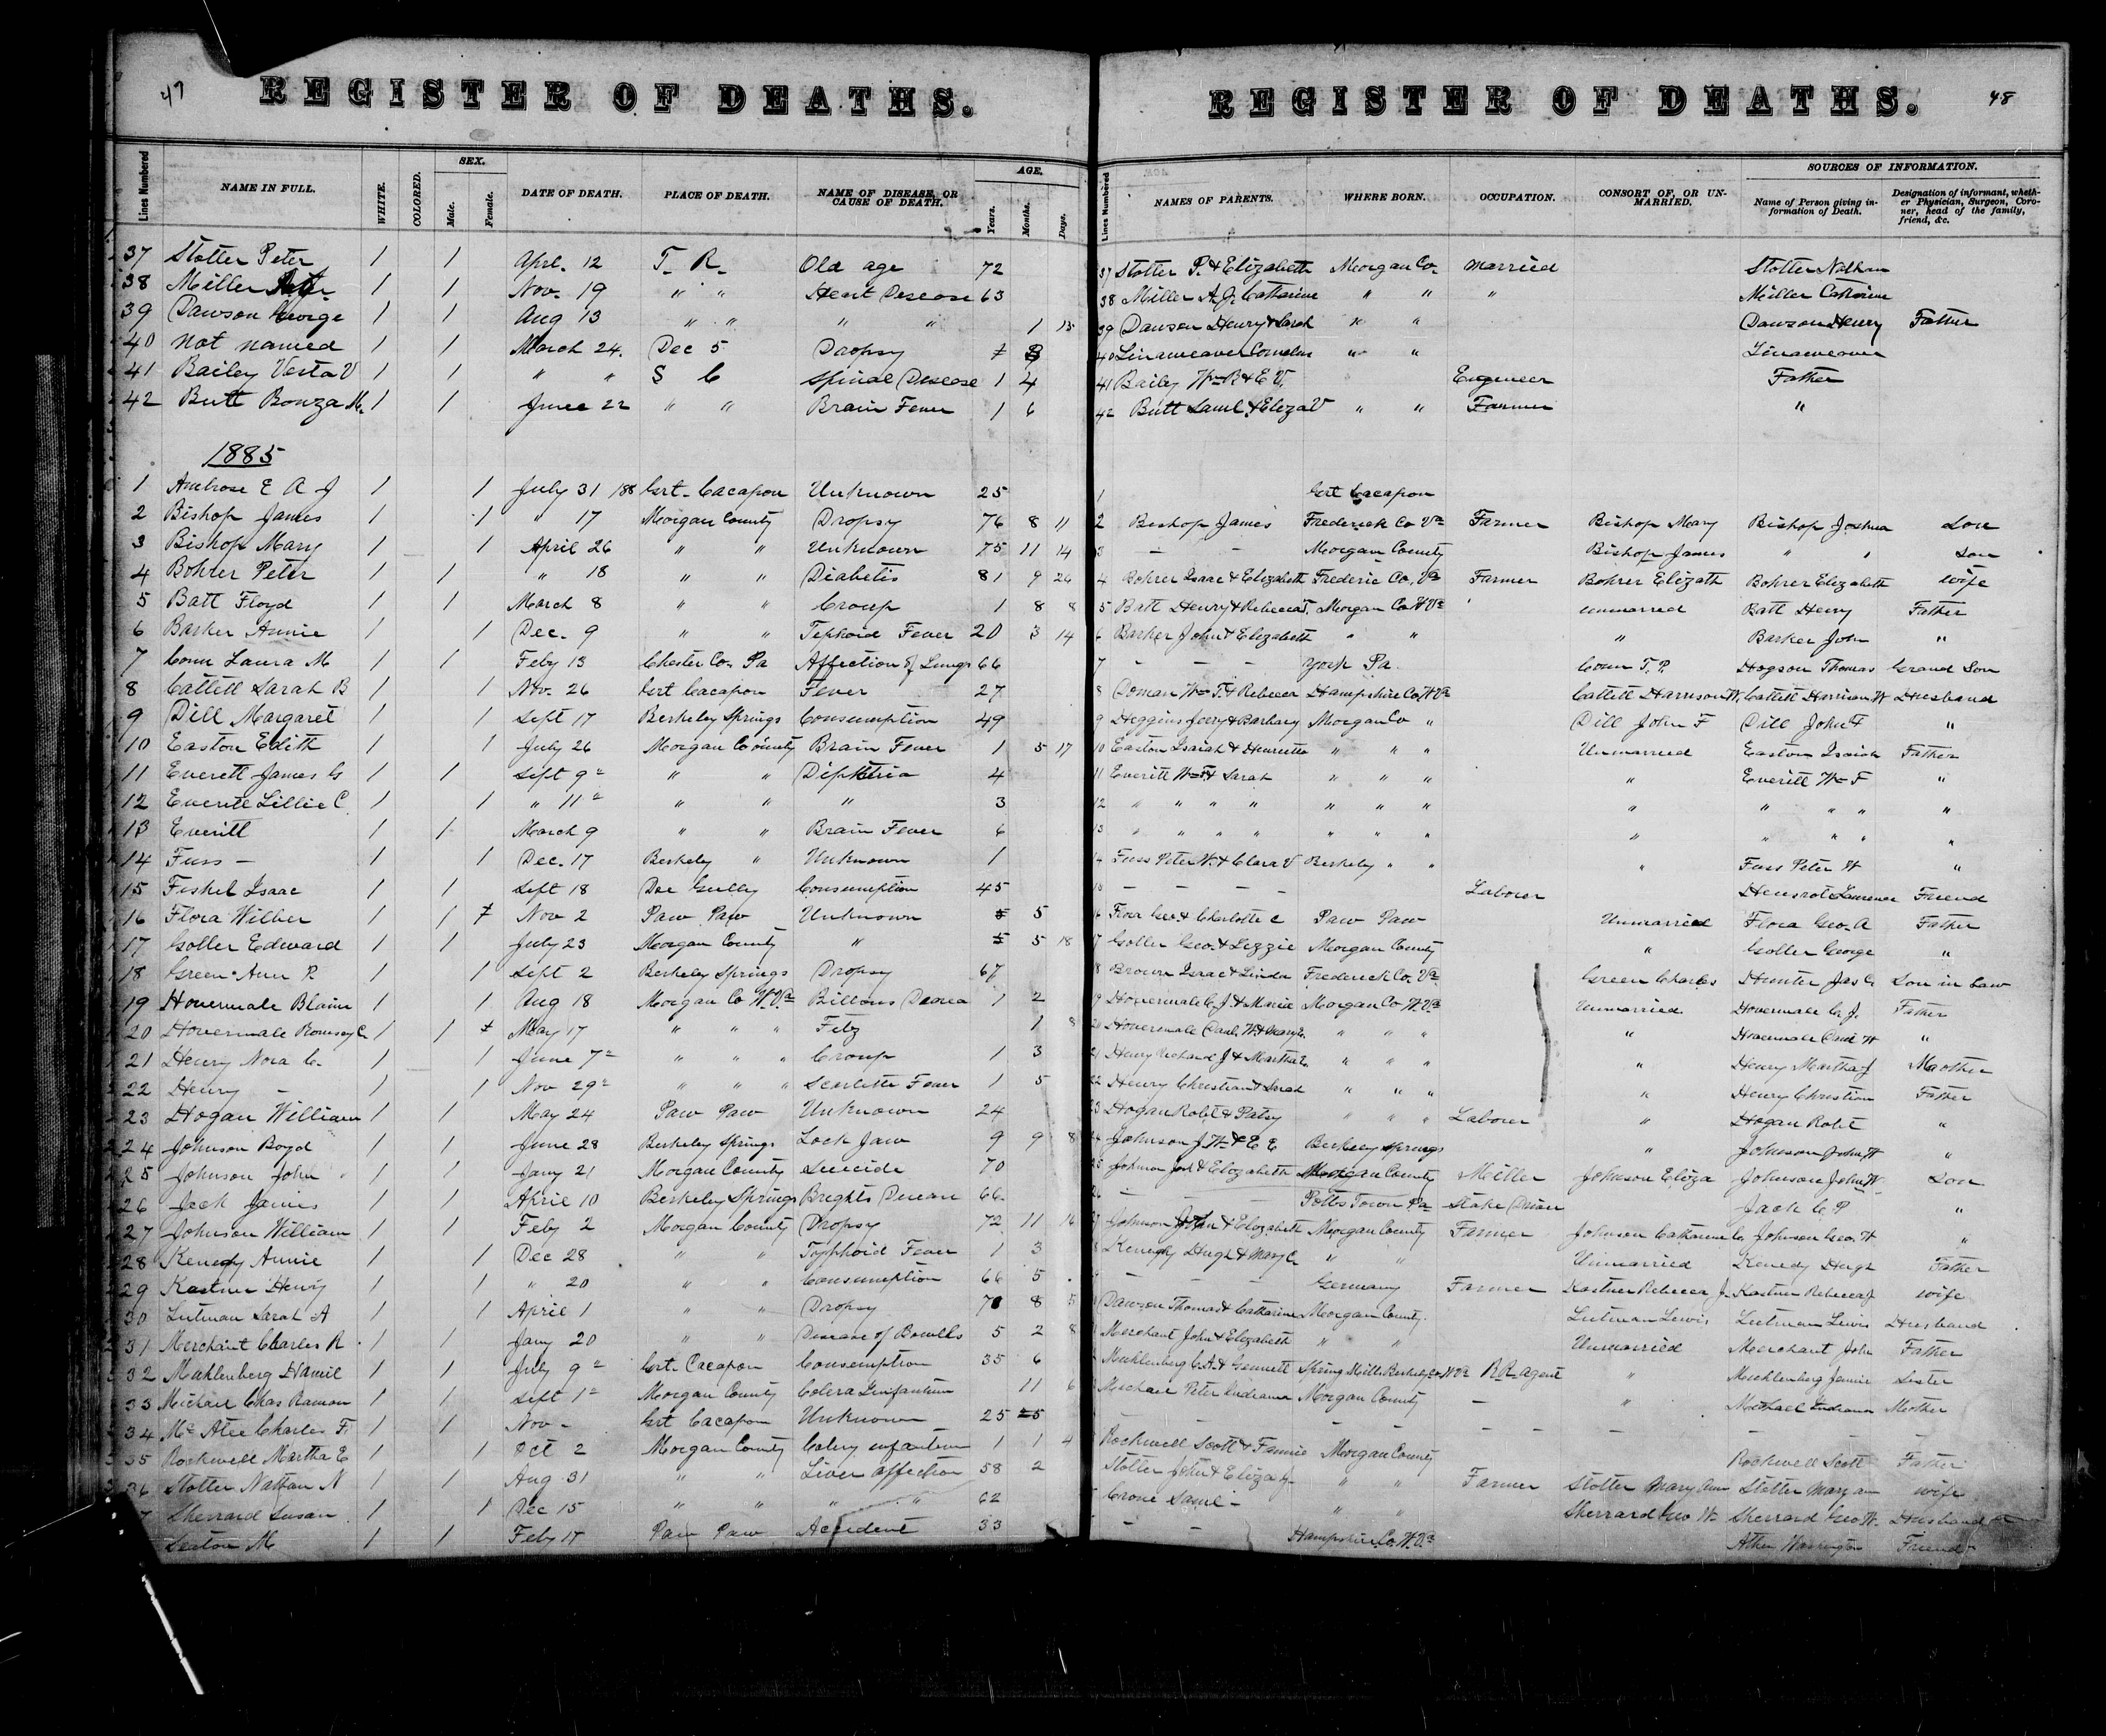 47
REGISTER OF DEATHS.
Lines Numbered
NAME IN FULL.
WHITE.
COLORED.
SEX.
Male.
Female.
DATE OF DEATH.
PLACE OF DEATH.
NAME OF DISEASE, OR CAUSE OF DEATH.
AGE.
Years.
Months.
Days.
37 Stotler Peter 1 1 Aprl. 12 T. R. Old age 72
38 Miller 1 1 Nov. 19 " " Heart Desease 63
39 Dawson George 1 1 Aug 13 " " " " 1 13
40 Not named 1 1 March 24. Dec 5 Dropsy
41 Bailey Vesta V 1 1 " " S C Spinal Desease 1 4
42 Butt Bonza M. 1 1 June 22 " " Brain Fever 1 6
1885
1 Ambrose E A J 1 1 July 31 188 Grt. Cacapon Unknown 25
2 Bishop James 1 1 " 17 Morgan County Dropsy 76 8 11
3 Bishop Mary 1 1 April 26 " " Unknown 75 11 14
4 Bohrer Peter 1 1 " 18 " " Diabetis 81 9 26
5 Batt Floyd 1 1 March 8 " " Croup 1 8 8
6 Barker Annie 1 1 Dec. 9 " " Tephoid Fever 20 3 14
7 Conn Laura M 1 1 Feby 13 Chester Co. Pa Affection of Lungs 66
8 Catlett Sarah B 1 1 Nov. 26 Grt Cacapon Fever 27
9 Dill Margaret 1 1 Sept 17 Berkeley Springs Consumption 49
10 Easton Edith 1 1 July 26 Morgan County Brain Fever 1 5 17
11 Everett James G 1 1 Sept 9 " " Diphtria 4
12 Everett Lillie C 1 1 " 11 " " " 3
13 Everitt 1 1 March 9 " " Brain Fever 6
14 Fuss - 1 1 Dec. 17 Berkeley " Unknown 1
15 Fishel Isaac 1 1 Sept 18 Doe Gulley Consumption 45
16 Flora Wilber 1 1 Nov 2 Paw Paw Unknown 5
17 Goller Edward 1 1 July 23 Morgan County " 5 18
18 Green Ann P. 1 1 Sept 2 Berkeley Springs Dropsy 67
19 Hovermale Blain 1 1 Aug 18 Morgan Co W.Va Billous 1 2
20 Hovermale Romsey C 1 1 May 17 " " " Fitz 1 8
21 Henry Nora C. 1 1 June 7 " " " Croup 1 3
22 Henry - 1 1 Nov 29 " " " Scarlette Fever 1 5
23 Hogan William 1 1 May 24 Paw Paw Unknown 24
24 Johnson Boyd 1 1 June 28 Berkeley Springs Lock Jaw 9 9 8
25 Johnson John 1 1 Jany 21 Morgan County Suicide 70
26 Jack James 1 1 April 10 Berkeley Springs Brights Desease 66
27 Johnson William 1 1 Feby 2 Morgan County Dropsy 72 11 16
28 Kenedy Annie 1 1 Dec 28 " " Typphoid Fever 1 3
29 Kastner Henry 1 1 " 20 " " Consumption 66 5
30 Lutman Sarah A 1 1 April 1 " " Dropsy 8 5
31 Merchant Charles R 1 1 Jany 20 " " Desease of Bowells 5 2 8
32 Muhlenberg Daniel 1 1 July 9 Grt. Cacapon Consumption 35 6
33 Michael Chas Ramon 1 1 Sept 1 Morgan County Colera Infantum 11 6
34 Mc Atee Charles F. 1 1 Nov - Grt Cacapon Unknown 25
35 Rockwell Martha E 1 1 Oct 2 Morgan County infantum 1 1 4
36 Stotler Nathan N 1 1 Aug 31 " " Liver affection 58 2
7 Sherrard Susan 1 1 Dec 15 " " " " 62
Seaton M 1 1 Feby 17 Paw Paw Accident 33
REGISTER OF DEATHS.
48
Lines Numbered
NAMES OF PARENTS.
WHERE BORN.
OCCUPATION.
CONSORT OF, OR UNMARRIED.
SOURCES OF INFORMATION.
Name of Person giving information of Death.
Designation of informant, whether Physician, Surgeon, Coroner, head of the family, friend, &c.
37 Stotler P. & Elizabeth Morgan Co. Married Stotler Nathan
38 Miller A. J. Catharine " " " Miller Catharine
39 Dawson Henry & Sarah " " Dawson Henry Father
40 Linaweaver Cornelius " " Linaweaver
41 Bailey Wm B & E V. Engeneer Father
42 Butt Saml & Eliza V " " Farmer "
1 Grt Cacapon
2 Bishop James Frederick Co Va Farmer Bishop Mary Bishop Joshua Son
3 - - Morgan County Bishop James " " Son
4 Bohrer Isaac & Elizabeth Frederic Co. Va Farmer Bohrer Elizath Bohrer Elizabeth wife
5 Batt Henry & Rebecca T. Morgan Co W Va unmarried Batt Henry Father
6 Barker John & Elizabeth " " " Barker John "
7 - - - York Pa. Conn T. P. Hogson Thomas Grand Son
8 Doman Wm T. & Rebecca Hampshire Co, W Va Catlett Harrison W. Catlett Harrison W Husband
9 Higgins Jerry & Barbary Morgan Co " Dill John F Dill John F "
10 Easton Isaiah & Henrietta " " " Unmarried Easton Isaiah Father
11 Everitt Wm F & Sarah " " " " Everitt Wm F "
12 " " " " " " " " " " " "
13 " " " " " " " " " " " "
14 Fuss Peter W. & Clara V Berkeley " " " Fuss Peter W "
15 - - - - Laborer Lawrence Friend
16 Flora Geo. & Charlotte C Paw Paw Unmarried Flora Geo. A Father
17 Goller Geo. & Lizzie Morgan County " Goller George "
18 Brown Isaac & Linda Frederick Co. Va Green Charles Hunter Jas C. Son in Law
19 Hovermale C. J. & Marie Morgan Co W. Va Unmarried Hovermale C. J. Father
20 Hovermale W. & Mary C. " " " " Hovermale W "
21 Henry Richard J & Martha " " " " Henry Martha J Maother
22 Henry Christian & Sarah " " " " Henry Christian Father
23 Hogan Robt & Patsy " " " Laborer " Hogan Robt "
24 Johnson J. W. & E E Berkeley Springs " Johnson John W "
25 Johnson & Elizabeth Morgan County Miller Johnson Eliza Johnson John W Son
26 - - Potts Town Pa Jack C. P "
27 Johnson John & Elizabeth Morgan County Farmer Johnson Catharine C. Johnson Geo. W "
Kenedy Hugh & Mary C. " " Unmarried Kenedy Hugh Father
- - - Germany Farmer Kastner Rebecca J. Kastner Rebecca J wife
Dawson Thomas & Catharine Morgan County. Lutman Lewis Lutman Lewis Husband
Merchant John & Elizabeth " " Unmarried Merchant John Father
Muhlenberg C. A. & Gennett Spring Mills Berkeley Co. W Va R R agent " Muhlenberg Jennie Sister
Michael Peter & Indiana Morgan County - " Michael Indiana Mother
- - - - - - -
Rockwell Scott & Fannie Morgan County Rockwell Scott Father
Stotler John & Eliza " " Farmer Stotler Mary Ann Stotler Mary an wife
Crone Saml - " " Sherrard Geo W. Sherrard Geo W. Husband
- - Hampshire Co. W. Va Washington Friend